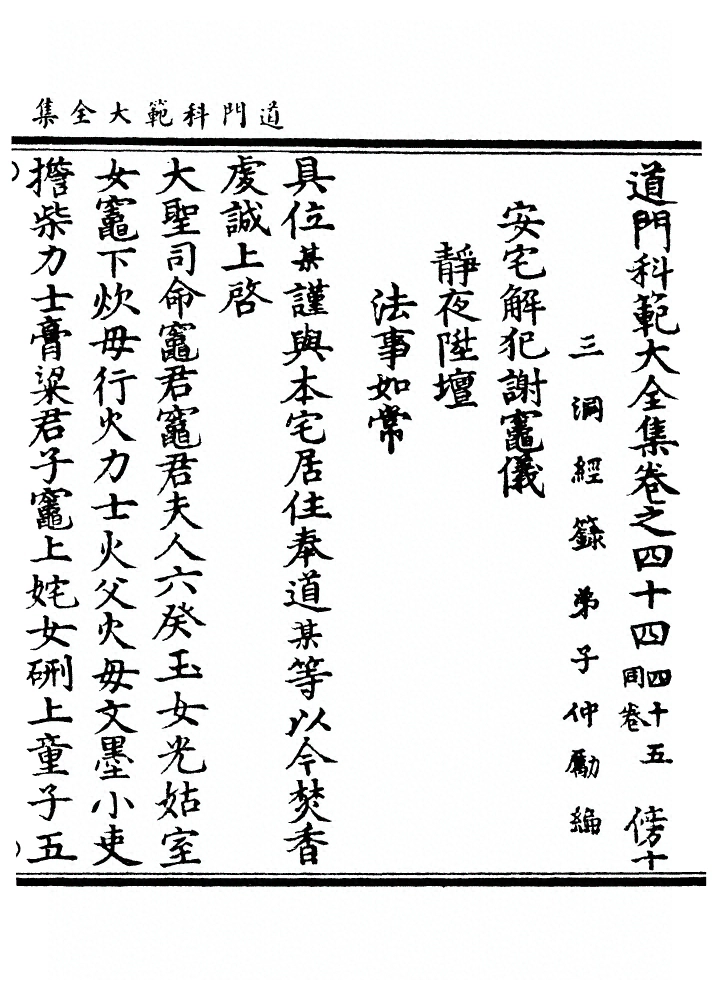 道門科範大全集
道門科範大全集卷之四十四四十五同卷 傍十
三洞經籙弟子仲勵編
安宅解犯謝竈儀
靜夜陞壇
法事如常
具位某謹與本宅居住奉道某等以今焚香
虔誠上啓
大聖司命竈君竈君夫人六癸玉女光姑室
女竈下炊母行火力士火父火母文墨小吏
擔柴力士膏粱君子竈上姹女硎上童子五